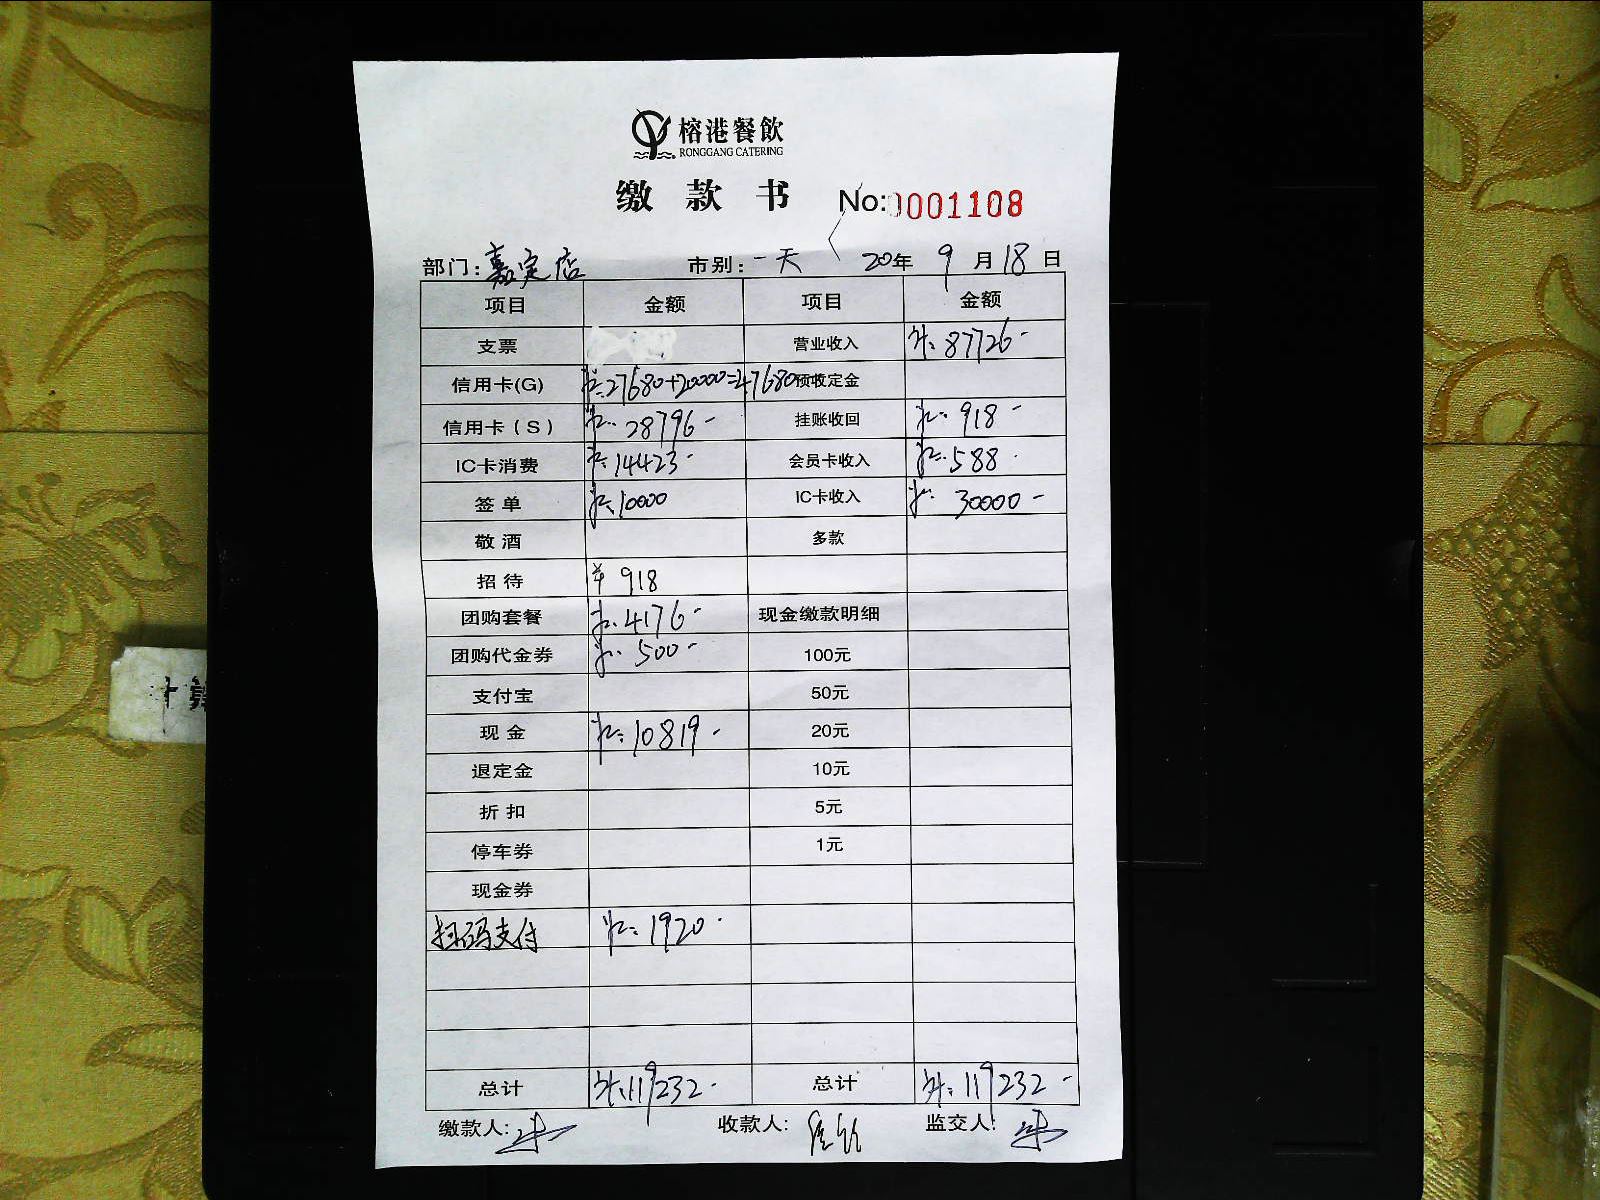 榕港餐飲
RONGGANG CATERING
缴 款 书 No:0001108
部门: 嘉定店 市别: 一天 20年 9月18日
项目 金额 项目 金额
支票 营业收入 ¥: 87726-
信用卡(G) ¥:27680+20000=47680 预收定金
信用卡(S) ¥: 28796- 挂账收回 ¥: 918-
IC卡消费 ¥: 14423- 会员卡收入 ¥: 588-
签单 ¥: 10000 IC卡收入 ¥: 30000-
敬酒 多款
招待 ¥ 918
团购套餐 ¥: 4176- 现金缴款明细
团购代金券 ¥: 500- 100元
支付宝 50元
现金 ¥: 10819- 20元
退定金 10元
折扣 5元
停车券 1元
现金券
扫码支付 ¥: 1920-
总计 ¥: 119232- 总计 ¥: 119232-
缴款人: 收款人: 监交人: